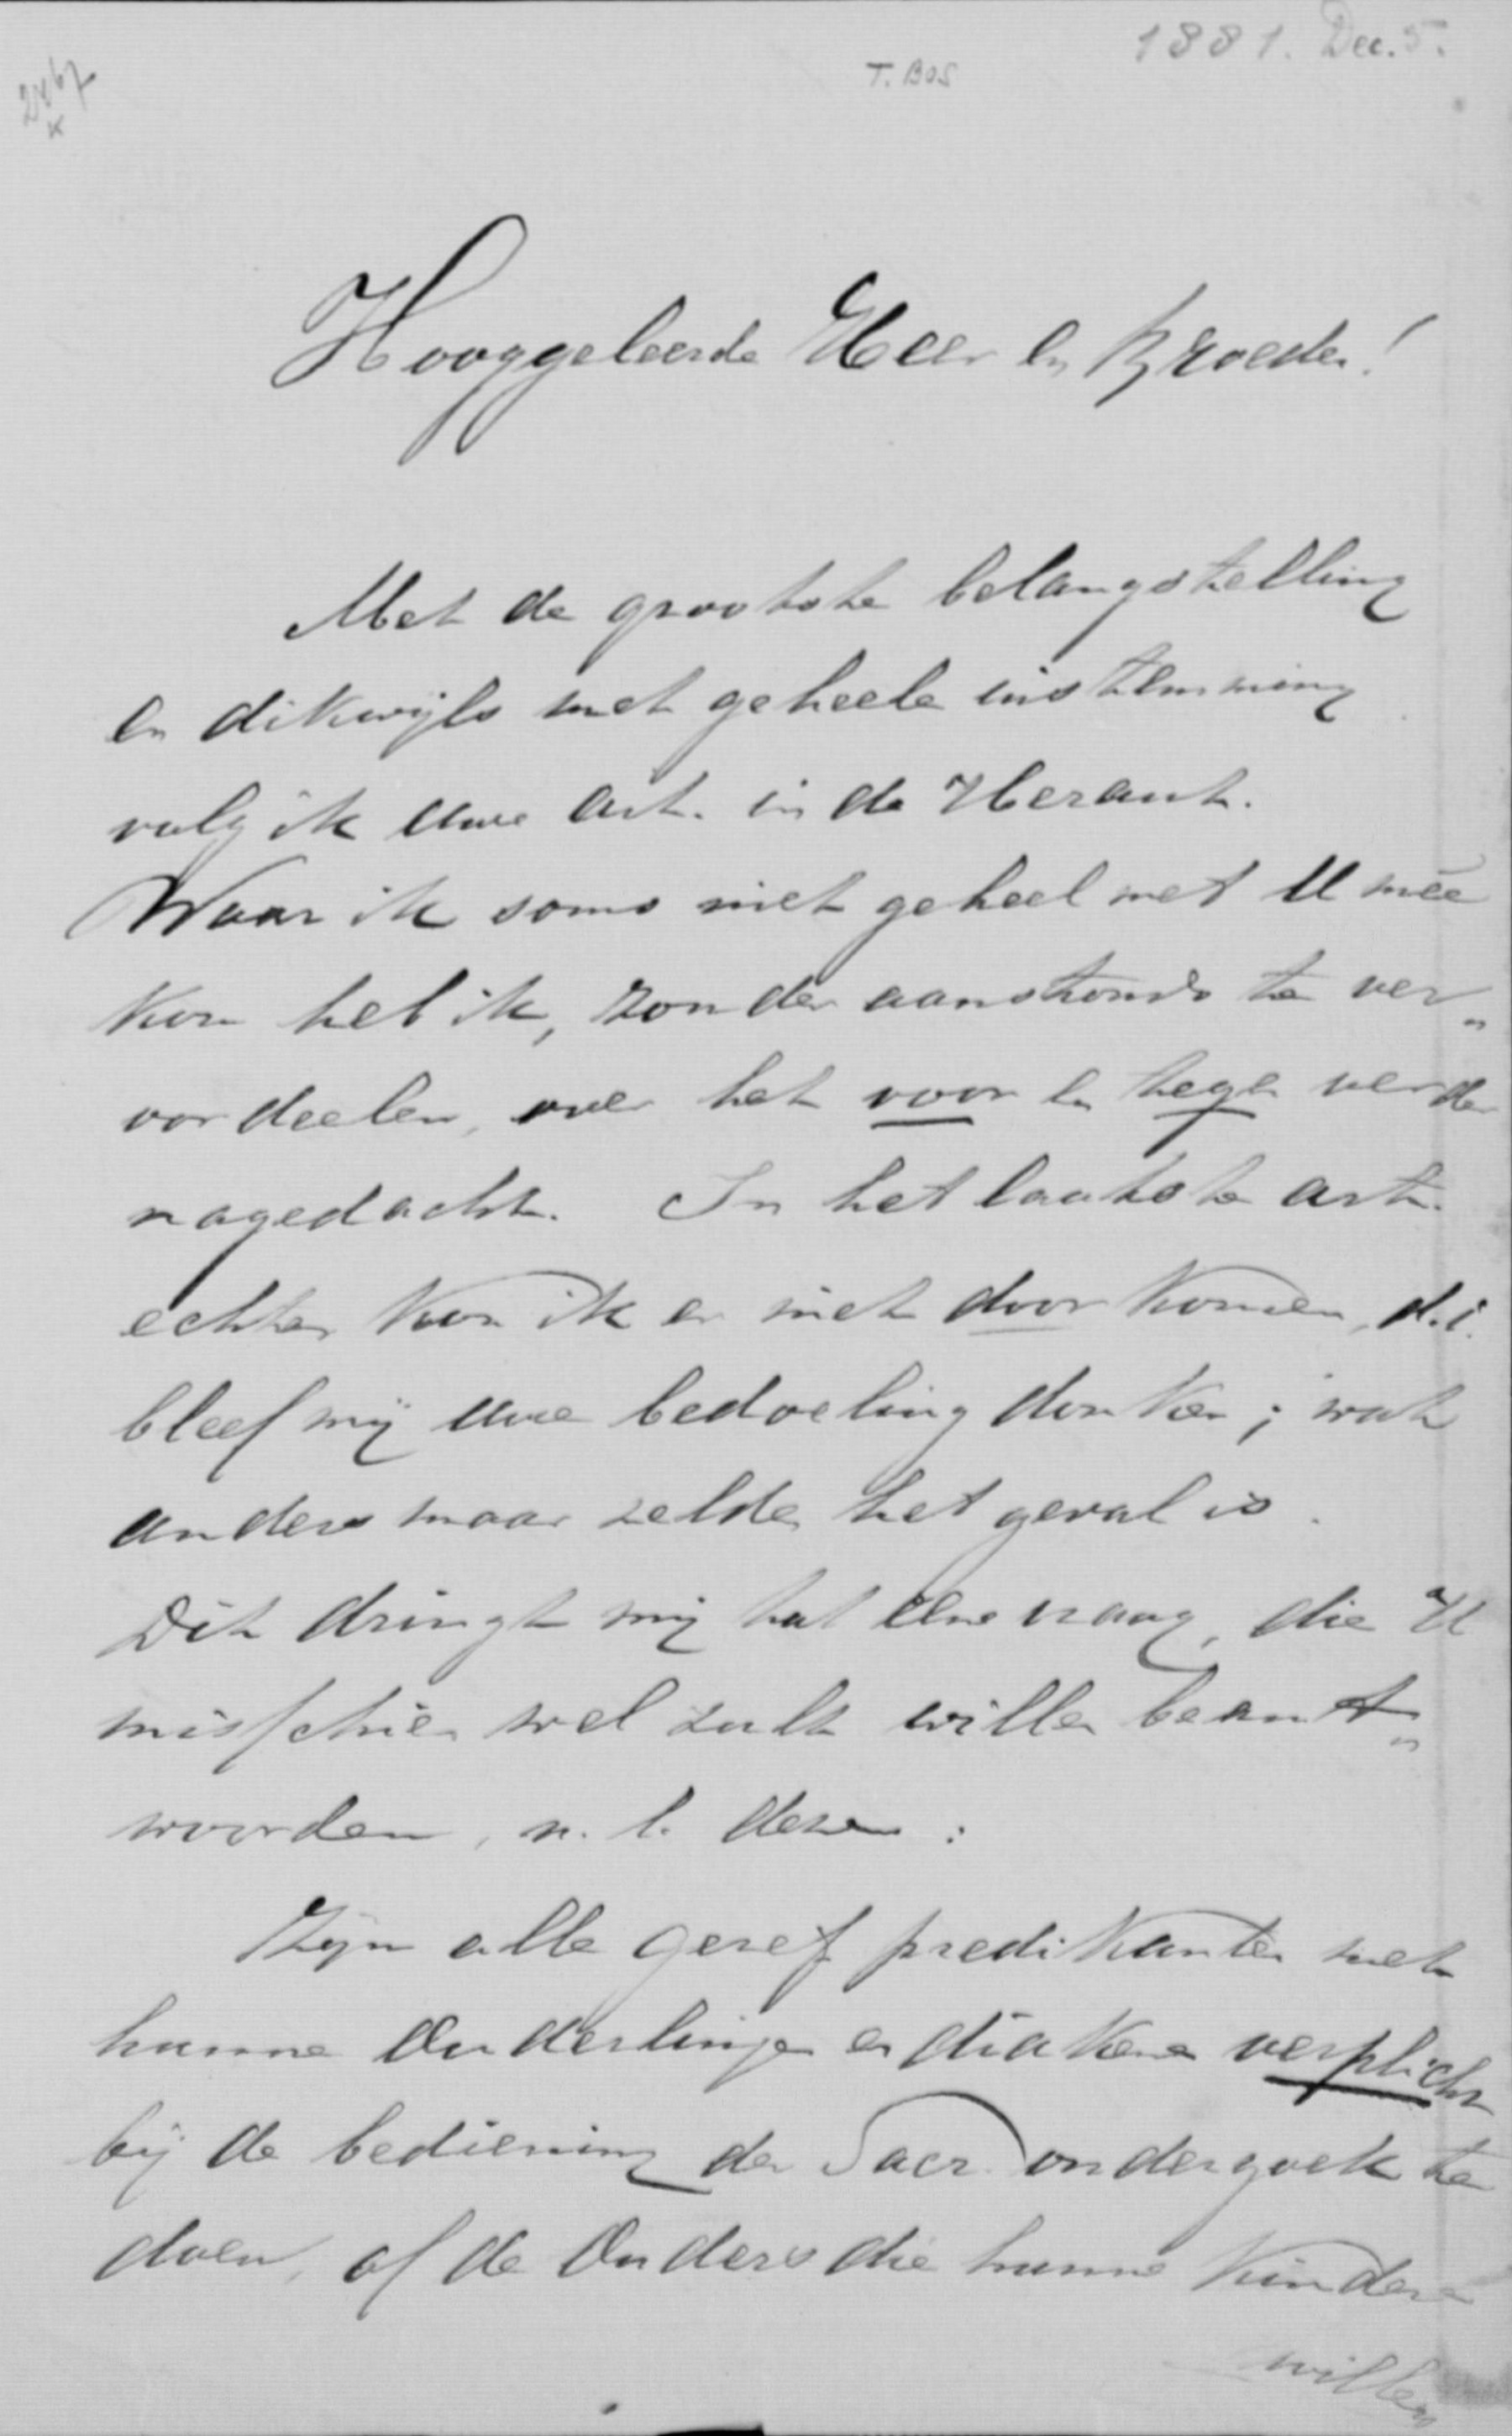 1881. Dec. 5.
T. BOS
2467
Hooggeleerde Heer en Broeder!
Met de grootste belangstelling
en dikwijls met geheele instemming
volg ik uwe art. in de Heraut.
Waar ik soms niet geheel met U mêe
kon heb ik, zonder aanstonds te ver„
oordeelen, over het voor en tegen verder
nagedacht. In het laatste art.
echter kon ik er niet door komen, d.i.
bleef mij uwe bedoeling donker; wat
anders maar zelden het geval is.
Dit dringt mij tot eene vraag, die U
misschien wel zult willen beant„
woorden, n.l. deze:
Zijn alle geref predikanten met
hunne Ouderlingen en diakenen verplicht
bij de bediening der Sacr. onderzoek te
doen, of de Ouders die hunne kinderen
willen